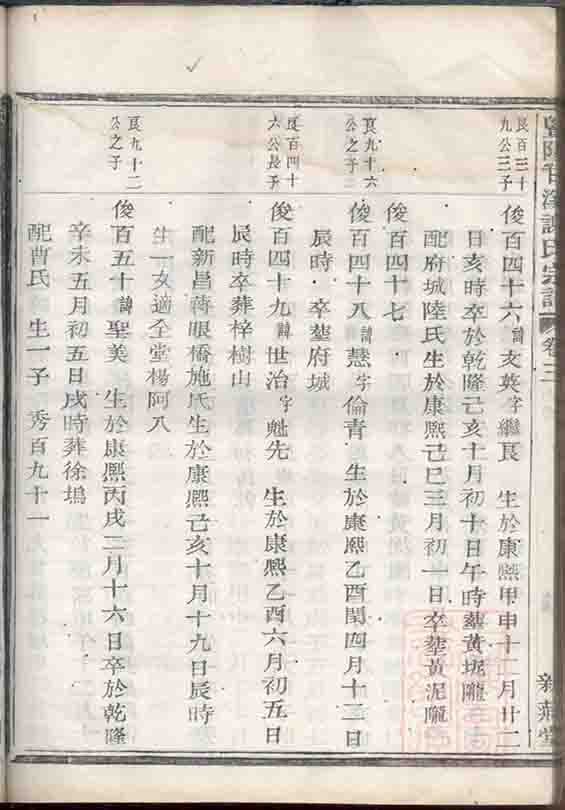 暨陽甘溪謝氏宗譜 卷三
良百三十
九公三子
俊百四十六諱文英字繼良 生於康熙甲申十二月廿二
日亥時卒於乾隆己亥十月初十日午時葬黃坭隴
配府城陸氏生於康熙己巳三月初一日卒葬黃泥隴
俊百四十七
良九十六
公之子
俊百四十八諱慧字倫青 生於康熙乙酉閏四月十二日
辰時 卒葬府城
良百四十
六公長子
俊百四十九諱世治字魁先 生於康熙乙酉六月初五日
辰時卒葬梓樹山
配新昌蔣眼橋施氏生於康熙己亥十月十九日辰時
生一女適仝堂楊阿八
良九十二
公之子
俊百五十諱聖美 生於康熙丙戌三月十六日卒於乾隆
辛未五月初五日戌時葬徐塢
配曹氏 生一子 秀百九十一